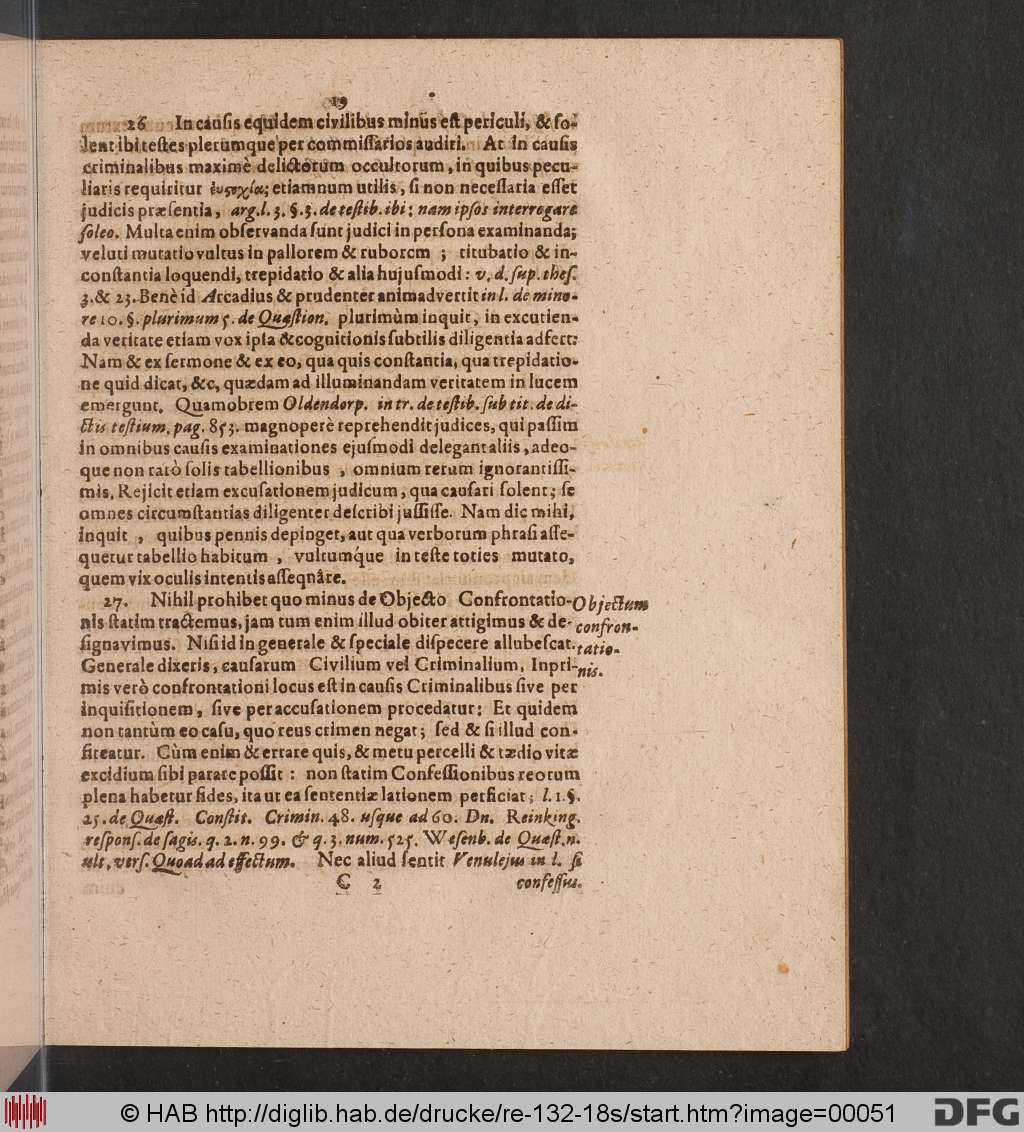 19
26 In causis equidem civilibus minus est periculi, & so-
lent ibi testes plerumque per commissarios audiri. At in causis
criminalibus maximè delictorum occultorum, in quibus pecu-
liaris requiritur etiamnum utilis, si non necessaria esset
judicis præsentia, arg. l. 3. §. 3. de testib. ibi: nam ipsos interrogare
soleo. Multa enim observanda sunt judici in persona examinanda;
veluti mutatio vultus in pallorem & ruborem ; titubatio & in-
constantia loquendi, trepidatio & alia hujusmodi: v. d. sup. thes.
3. & 23. Benè id Arcadius & prudenter animadvertit in l. de mino-
re 10. §. plurimum 5. de Quæstion. plurimùm inquit, in excutien-
da veritate etiam vox ipsa & cognitionis subtilis diligentia adfert:
Nam & ex sermone & ex eo, qua quis constantia, qua trepidatio-
ne quid dicat, &c, quædam ad illuminandam veritatem in lucem
emergunt. Quamobrem Oldendorp. in tr. de testib. sub tit. de di-
ctis testium, pag. 853. magnoperè reprehendit judices, qui passim
in omnibus causis examinationes ejusmodi delegant aliis, adeo-
que non rarò solis tabellionibus , omnium rerum ignorantissi-
mis. Rejicit etiam excusationem judicum, qua causari solent; se
omnes circumstantias diligenter describi jussisse. Nam dic mihi,
inquit , quibus pennis depinget, aut qua verborum phrasi asse-
quetur tabellio habitum , vultumq́ue in teste toties mutato,
quem vix oculis intentis
27. Nihil prohibet quo minus de Objecto Confrontatio-
nis statim tractemus, jam tum enim illud obiter attigimus & de-
signavimus. Nisi id in generale & speciale dispecere allubescat.
Generale dixeris, causarum Civilium vel Criminalium, Inpri-
mis verò confrontationi locus est in causis Criminalibus sive per
inquisitionem, sive per accusationem procedatur: Et quidem
non tantùm eo casu, quo reus crimen negat; sed & si illud con-
fiteatur. Cùm enim & errare quis, & metu percelli & tædio vitæ
excidium sibi parare possit : non statim Confessionibus reorum
plena habetur fides, ita ut ea sententiæ lationem perficiat; l. 1. §.
25. de Quæst. Constit. Crimin. 48. usque ad 60. Dn. Reinking.
respons. de sagis. q. 2. n. 99. & q. 3. num. 525. Wesenb. de Quæst. n.
ult. vers. Quoad ad effectum. Nec aliud sentit Venulejus in l. si
C 2 confessus.
Objectum
confron-
tatio-
nis.
© HAB http://diglib.hab.de/drucke/re-132-18s/start.htm?image=00051
DFG